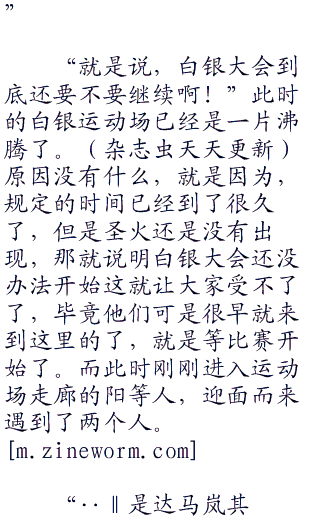 ”
“就是说，白银大会到
底还要不要继续啊！”此时
的白银运动场已经是一片沸
腾了。（杂志虫天天更新）
原因没有什么，就是因为，
规定的时间已经到了很久
了，但是圣火还是没有出
现，那就说明白银大会还没
办法开始这就让大家受不了
了，毕竟他们可是很早就来
到这里的了，就是等比赛开
始了。而此时刚刚进入运动
场走廊的阳等人，迎面而来
遇到了两个人。
[m.zineworm.com]
“‥‖是达马岚其